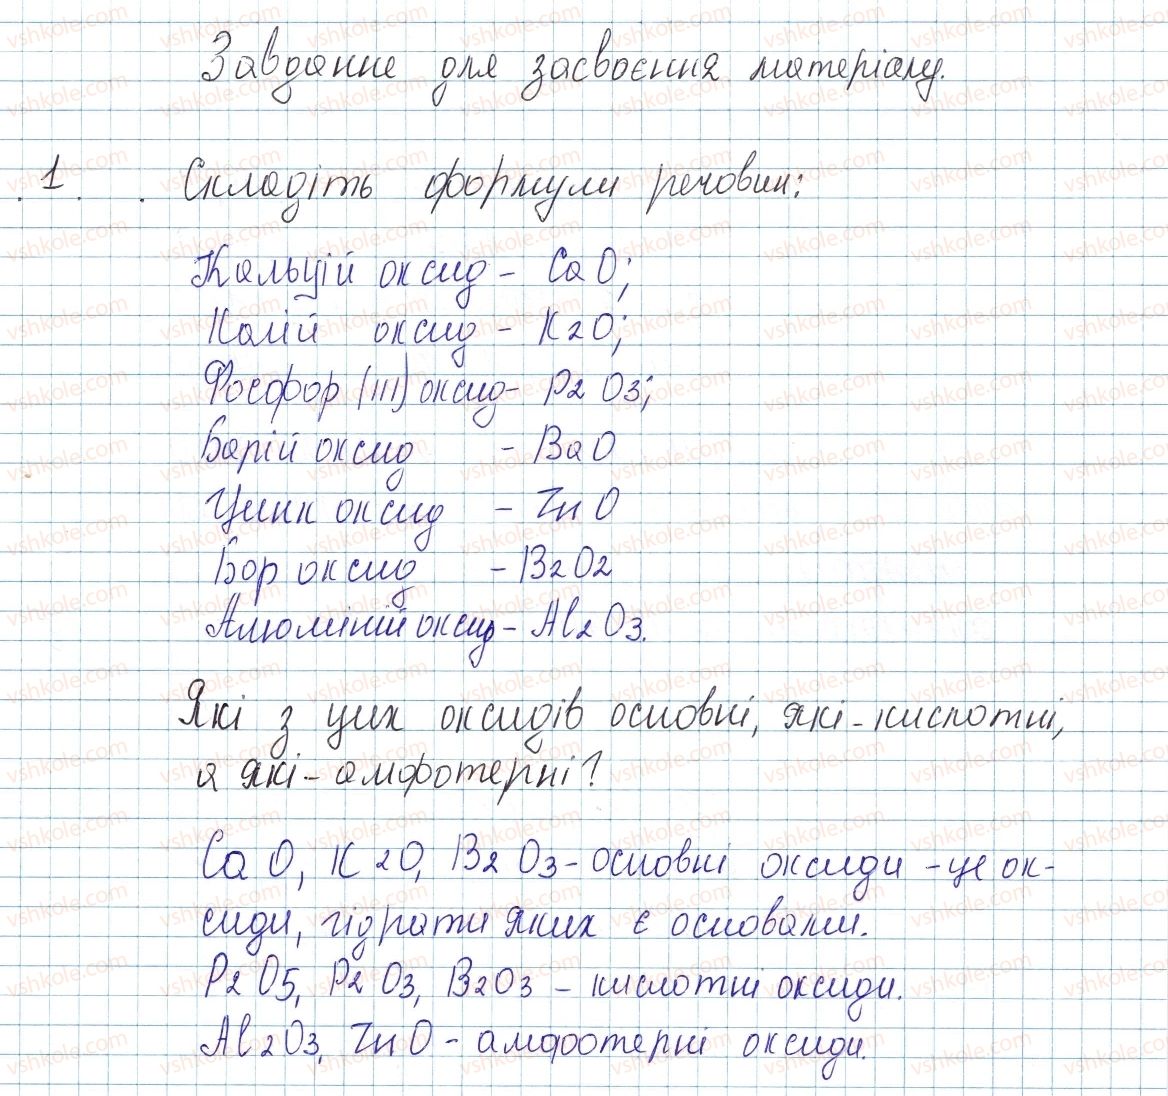 Завдання для засвоєння матеріалу.
1. Складіть формули речовин:
Кальцій оксид - CaO;
Калій оксид - K2O;
Фосфор (III) оксид - P2O3;
Барій оксид - BaO
Цинк оксид - ZnO
Бор оксид - B2O2
Алюміній оксид - Al2O3.
Які з цих оксидів основні, які - кислотні,
а які - амфотерні?
CaO, K2O, B2O3 - основні оксиди - це ок-
сиди, гідрати яких є основами.
P2O5, P2O3, B2O3 - кислотні оксиди.
Al2O3, ZnO - амфотерні оксиди.